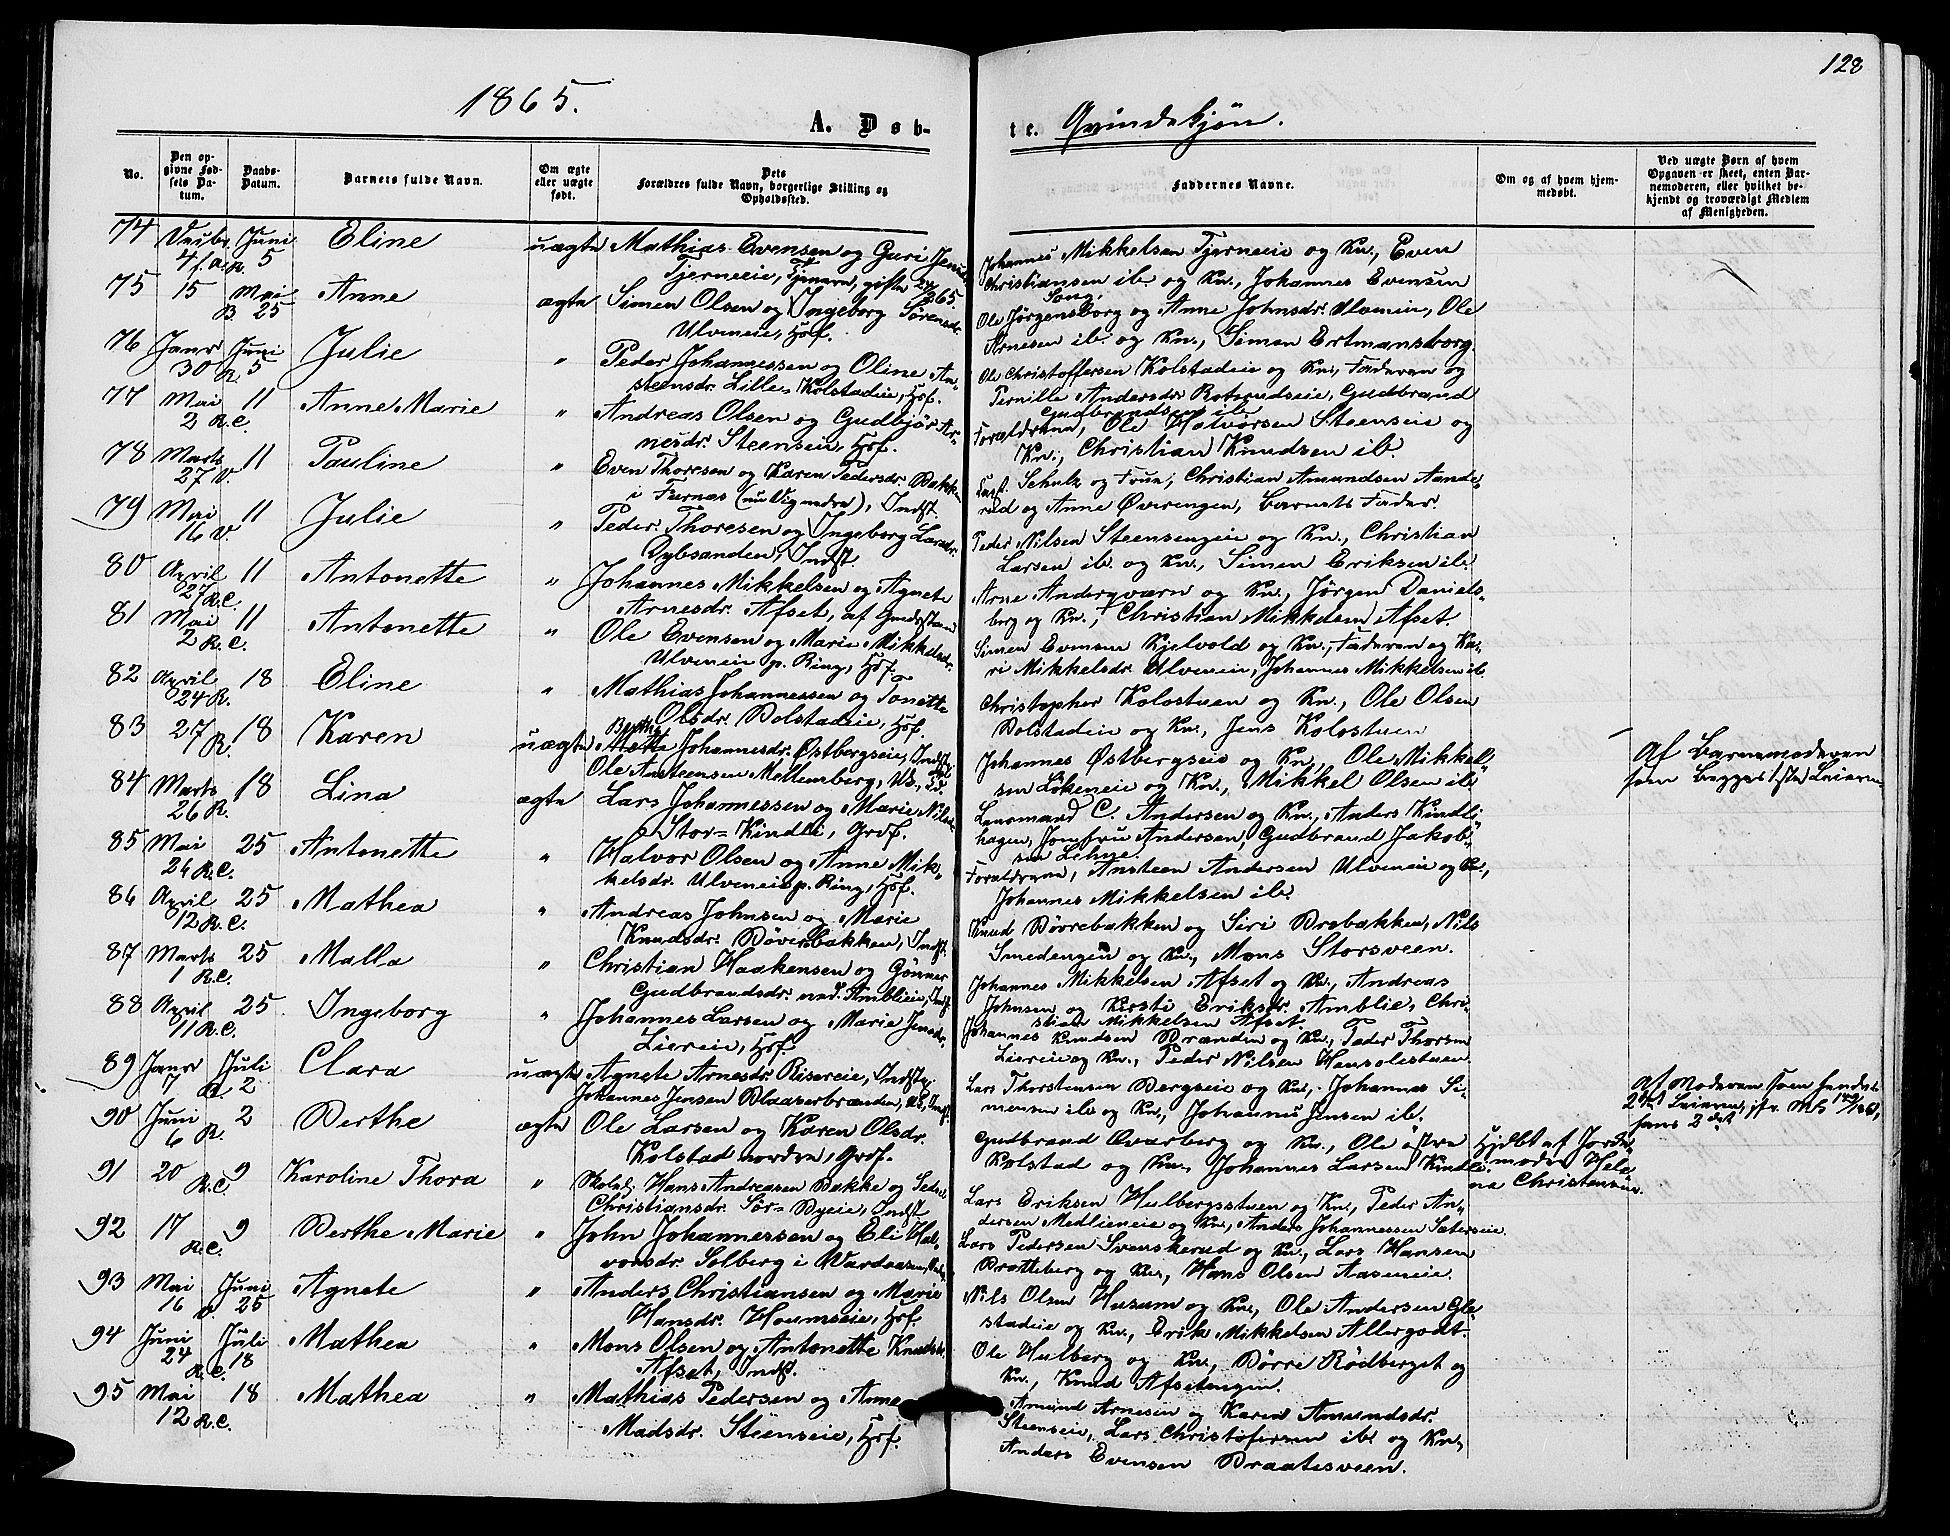 128
1865.
A. Døb-
te. Qvindekjøn.
No.
Den opgivne Fødsels Datum.
Daabs-Datum.
Barnets fulde Navn.
Om ægte eller uægte født.
Dets Forældres fulde Navn, borgerlige Stilling og Opholdssted.
Faddernes Navne.
Om og af hvem hjemmedøbt.
Ved uægte Børn af hvem Opgaven er skeet, enten Barnemoderen, eller hvilket bekjendt og troværdigt Medlem af Menigheden.
74 Juni 5 Eline uægte Mathias Evensen og Guri
Tjerneeie, gifte
Johannes Mikkelsen Tjerneeie og Kn., Even
Christiansen ib. og Kn., Johannes Evensen
75 15 Mai 25 Anne ægte Simen Olsen og Ingeborg Sørensdr.
Ulveneie, Hof.
Ole Jørgensborg og Anne Johnsdr. Ulveneie, Ole
Arnesen ib. og Kn., Simen Ertmansborg.
76 Janr 30 Juni 5 Julie " Peder Johannessen og Oline An-
steensdr. Lille-Kolstadeie, Hof.
Ole Christoffersen Kolstadeie og Kn., Faderen og
Pernille Andersdr. Rotsrudseie, Gudbrand
Gudbrandsen ib.
77 Mai 2 R.C. 11 Anne Marie " Andreas Olsen og Gudbjør Ar-
nesdr. Steenseie, Hof.
Forældrene, Ole Halvorsen Steenseie og
Kn., Christian Knudsen ib.
78 Marts 27 V. 11 Pauline " Even Thoresen og Karen Pedersdr. Bakken
i Furnæs (nu Vigendre), Indst.
Schulz og Frue, Christian Amundsen Aande-
rud og Anne Øverengen, Barnets Fader.
79 Mai 16 V. 11 Julie " Peder Thoresen og Ingeborg Larsdr.
Dybsanden, Indst.
Peder Nilsen Steensengeie og Kn., Christian
Larsen ib. og Kn., Simen Eriksen ib.
80 April 27 R.C. 11 Antonette " Johannes Mikkelsen og Agnete
Arnesdr. Afset, af
Arne Andergværn og Kn., Jørgen Daniels-
berg og Kn., Christian Mikkelsen Afset.
81 Mai 2 R.C. 11 Antonette " Ole Evensen og Marie Mikkelsdr.
Ulveneie p. Ring, Hof.
Simen Evensen Kjelvold og Kn., Faderen og Ka-
ri Mikkelsdr. Ulveneie, Johannes Mikkelsen ib.
82 April 24 R. 18 Eline " Mathias Johannessen og Tonette
Olsdr. Bolstadeie, Hof.
Christopher Kolostuen og Kn., Ole Olsen
Bolstadeie og Kn., Jens Kolostuen
83 27 R. 18 Karen uægte Johannesdr. Østbergseie, Indst.
Ole Ansteensen Mellemberg,
Johannes Østbergseie og Kn., Ole Mikkel-
sen Løkeneie og Kn., Mikkel Olsen ib
Af Barnemoderen
som begges 1ste Leierm.
84 Marts 26 R. 18 Lina ægte Lars Johannessen og Marie Nilsdr.
Stor-Kindli, Grdf.
Lensmand C. Andersen og Kn., Anders Kindli-
hagen, Jomfru Andersen, Gudbrand Jakob-
sen Lehne.
85 Mai 24 R.C. 25 Antonette " Halvor Olsen og Anne Mik-
kelsdr. Ulveneie p. Ring, Hof.
Forældrene, Ansteen Andersen Ulveneie og Kn.,
Johannes Mikkelsen ib.
86 April 12 R.C. 25 Mathea " Andreas Johnsen og Marie
Knudsdr. Bøverbakken, Indst.
Knud Børrebakken og Siri Brebakken, Nils
Smedengen og Kn., Mons Storsveen.
87 Marts 1 R.C. 25 Malla " Christian Haakensen og Gønner
Gudbrandsdr. ned. Amblieie, Indst.
Johannes Mikkelsen Afset og Kn., Andreas
Johnsen og Kersti Eriksdr. Amblie, Chri-
stian Mikkelsen Afset.
88 April 11 R.C. 25 Ingeborg " Johannes Larsen og Marie Jensdr.
Liereie, Hof.
Johannes Knudsen Brænden og Kn., Peder Thorsen
Liereie og Kn., Peder Nilsen Hansolestuen.
89 Janr 7 Juli 2 Clara uægte Agnete Arnesdr. Risereie, Indst.
Johannes Jensen Blaaserbrænden,
Lars Thorstensen Bergseie og Kn., Johannes Si-
mensen ib og Kn., Johannes Jensen ib.
Af Moderen som hendes
2det Leierm.,
hans 2det
90 Juni 6 R. 2 Berthe ægte Ole Larsen og Karen Olsdr.
Kolstad nordre, Grdf.
Gudbrand Overberg og Kn., Ole østre
Kolstad og Kn., Johannes Larsen Kindli.
Hjdbt af Jorde-
moder Hele-
na Christensen.
91 20 R.C. 9 Karoline Thora " Skolel. Hans Andreasen Bakke og
Christiansdr. Sør-Byeie, Indst
Lars Eriksen Hulbergsstuen og Kn., Peder An-
dersen Medlieneie og Kn., Anders Johannessen Sæterseie.
92 17 R.C. 9 Berthe Marie " John Johannessen og Eli Hal-
vorsdr. Solberg i Vardaasen,
Lars Pedersen Svenskerud og Kn., Lars Hansen
Bratteberg og Kn., Hans Olsen Aaseneie.
93 Mai 16 Juni 25 Agnete " Anders Christiansen og Marie
Hansdr. Houmseie, Hof.
Nils Olsen Husum og Kn., Ole Andersen Glæ-
stadeie og Kn., Erik Mikkelsen Allergodt.
94 Juni 24 R.C. Juli 18 Mathea " Mons Olsen og Antonette Knudsdr.
Afset, Indst.
Ole Hulberg og Kn., Børre Rødberget og
Kn., Knud Afsetengen.
95 Mai 12 R.C. 18 Mathea " Mathias Pedersen og Anne
Madsdr. Steenseie, Hof.
Amund Arnesen og Karen Amundsdr.
Steenseie, Lars Christofersen ib. og Kn.,
Anders Evensen Braatesveen.